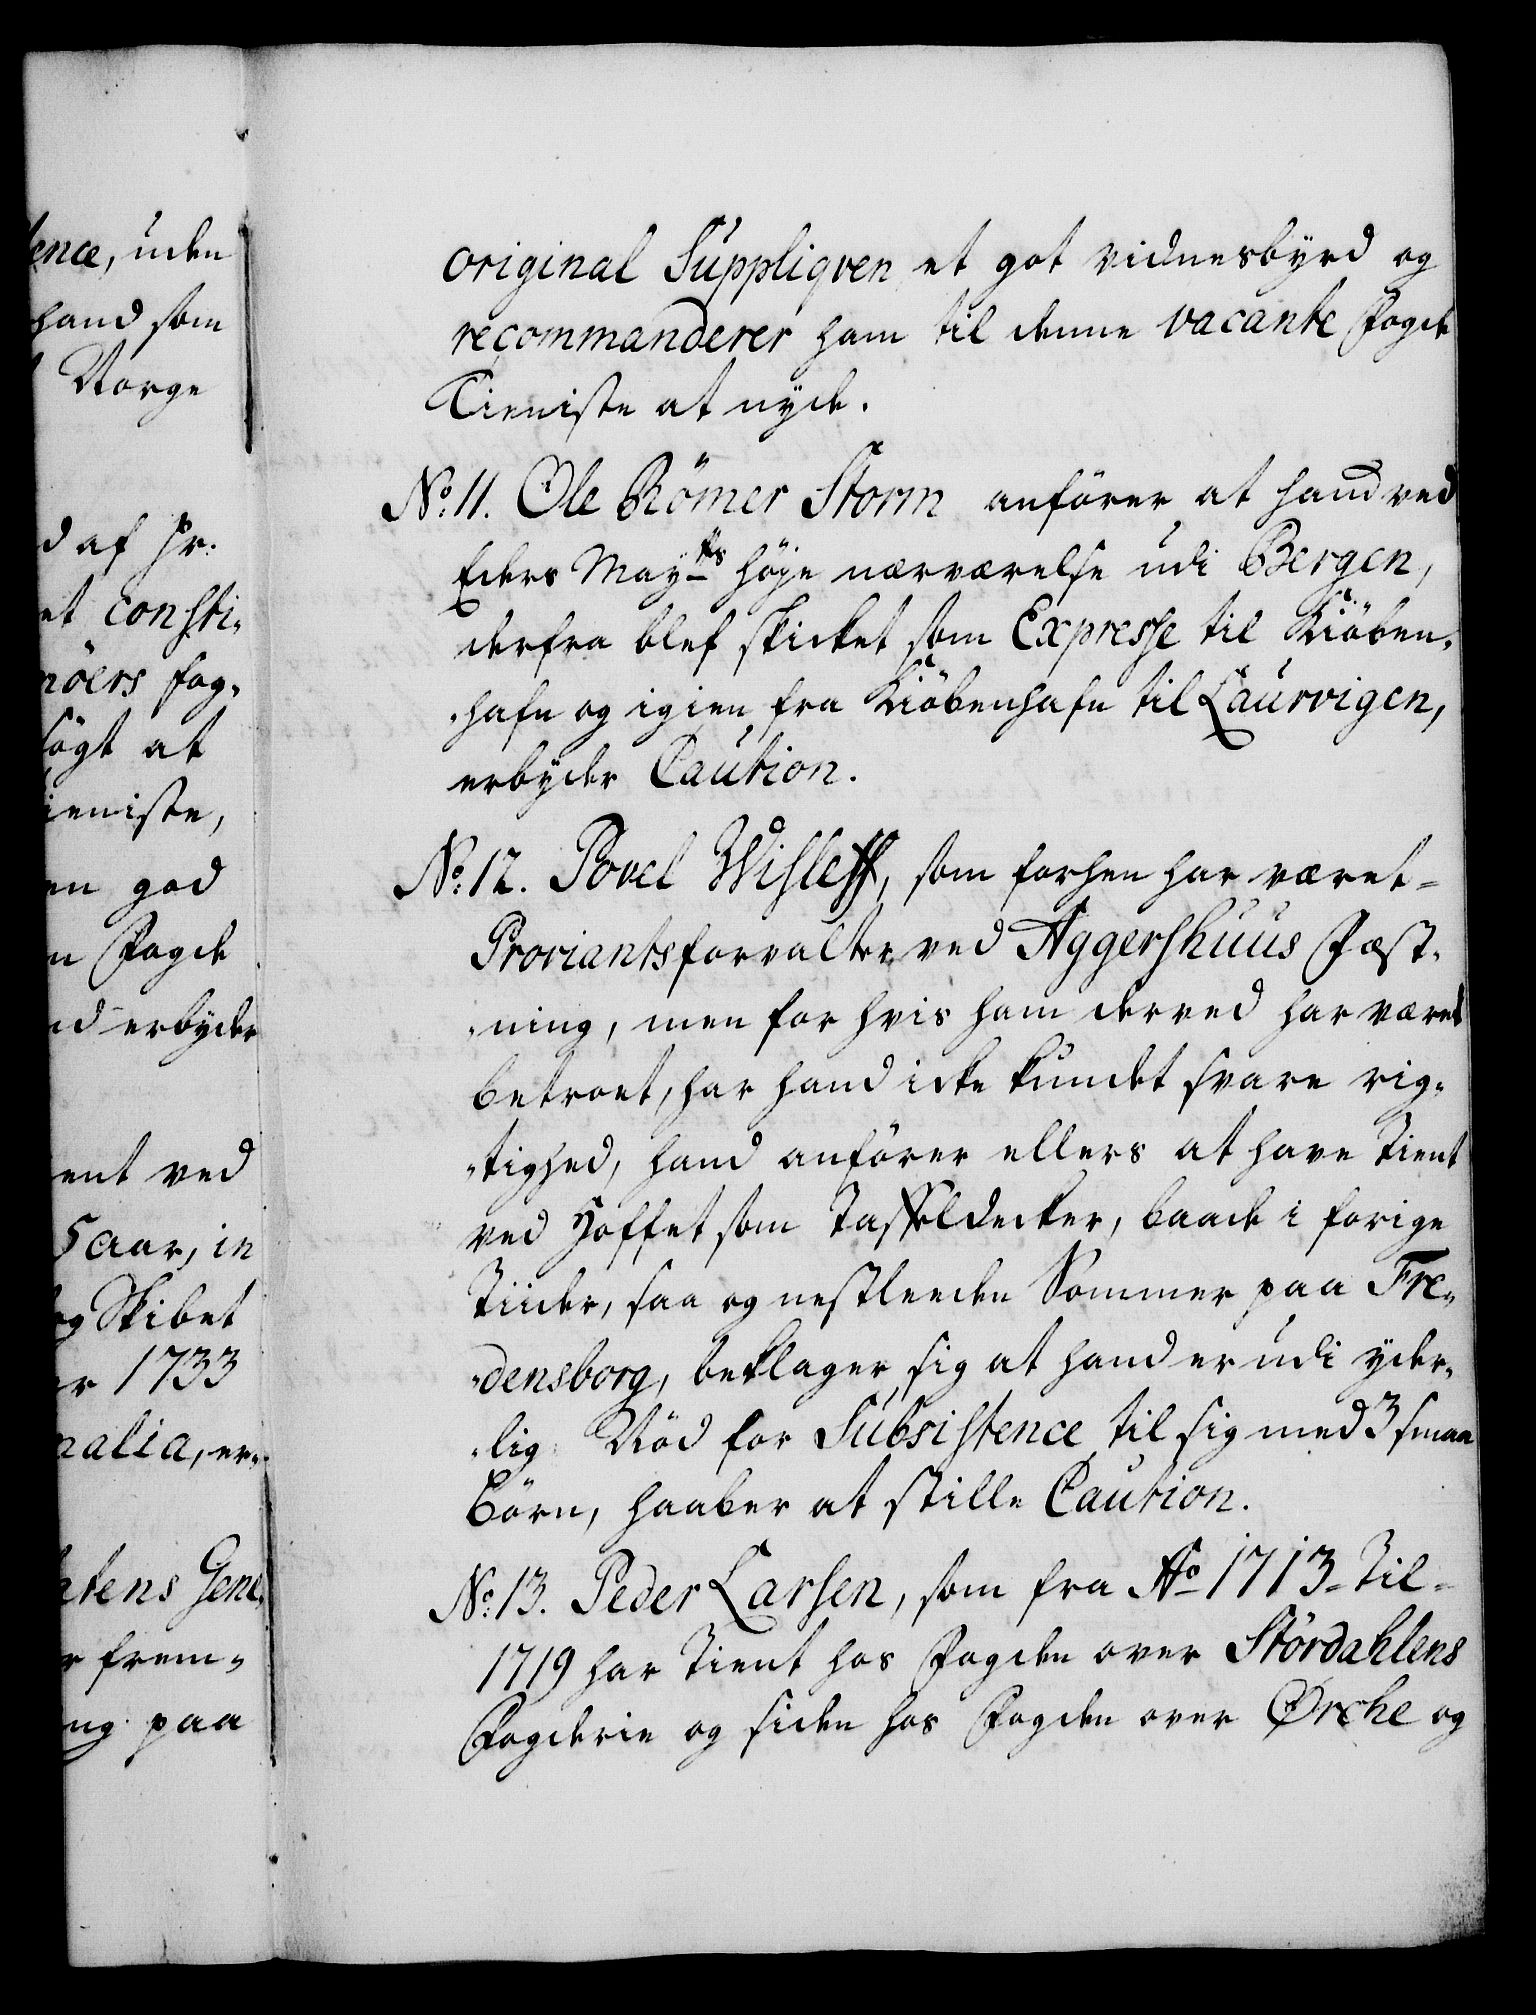 ence, uden
hand som
Norge
d af Hr.
et Consti-
nöers fog-
søgt at
ieniste,
en god
n Fogde
nd erbyder
ent ved
5 aar, in
og Skibet
er 1733
nalia, er-
htens Gene-
r frem-
ng paa
original Suppliqven et got vidnesbyrd og
recommanderer ham til denne vacante Fogde
Tieniste at nyde.
No: 11. Ole Römer Storm anförer at hand ved
Eders Mayts höje nærværelse udi Bergen,
derfra blef skicket som Expresse til Kiöben-
-hafn og igien fra Kiöbenhafn til Laurvigen,
erbyder Caution.
No: 12. Povel Wisleff, som forhen har været
Proviantsforvalter ved Aggershuus Fæst-
-ning, men for hvis ham derved har været
betroet, har hand icke kundet svare rig-
-tighed, hand anförer ellers at have tient
ved Hoffet som Taffeldecker, baade i forige
Tiider, saa og nestleeden Sommer paa Fre-
-densborg, beklager sig at hand er udi yder-
-lig Nöd for Subsistence til sig med 3 smaa
Börn, haaber at stille Caution.
No: 13. Peder Larsen, som fra Ao 1713 til
1719 har tient hos Fogden over Stördahlens
Fogderie og siden hos Fogden over Ørche og